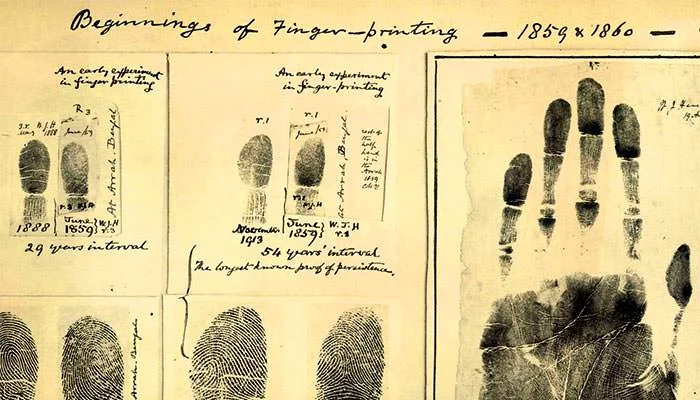 Beginnings of Finger-printing — 1859 & 1860 —
An early experiment
in finger printing
R 3
W.J.H
1888
June/59
At Arrah, Bengal
1888
June
1859
W.J.H
r.3
29 years interval
An early experiment
in finger-printing
r.1
r.1
June/59
At Arrah, Bengal
November
1913
June
1859
W.J.H
r.3
54 years' interval
The longest known proof of persistence.